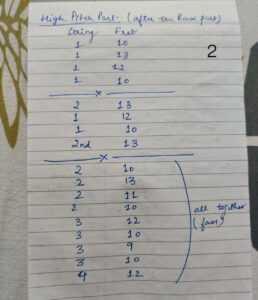 High Pitch Part (after the Base part)
String Fret
2
1 10
1 13
1 12
1 10
x
2 13
1 12
1 10
2nd 13
x
2 10
2 13
2 11
2 10
3 12
3 10
3 9
3 10
4 12
all together
(fast)